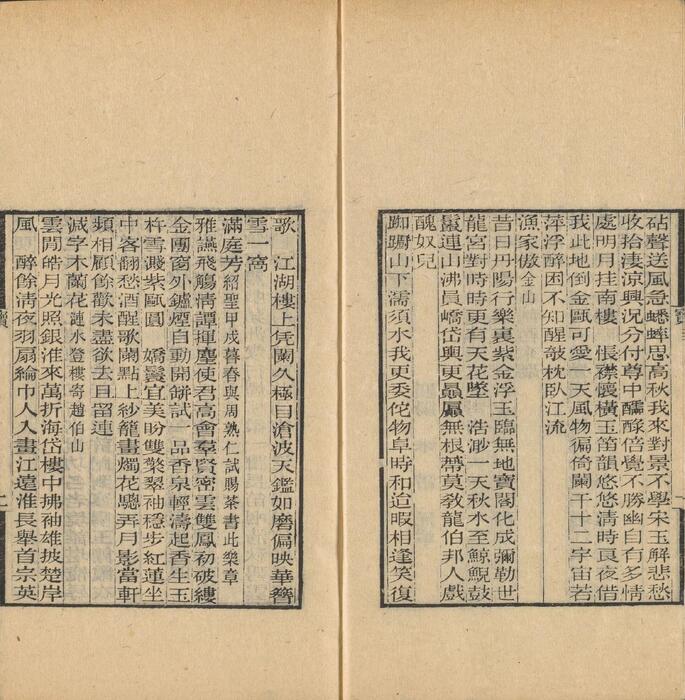 砧聲送風急蟋蟀思高秋我來對景不學宋玉解悲愁
收拾淒涼興況分付尊中醽醁倍覺不勝幽自有多情
處明月挂南樓　悵襟懷橫玉笛韻悠悠清時良夜借
我此地倒金甌可愛一天風物徧倚闌干十二宇宙若
萍浮醉困不知醒敧枕臥江流
漁家傲金山
昔日丹陽行樂裏紫金浮玉臨無地寶閣化成彌勒世
龍宮對時時更有天花墜　浩渺一天秋水至鯨鯢鼓
鬣連山沸員嶠岱輿更贔屭無根蔕莫敎龍伯邦人戲
醜奴兒
踟躕山下濡須水我更委佗物阜時和迨暇相逢笑復
歌　江湖樓上凭闌久極目滄波天鑑如磨偏映華簪
雪一窩
滿庭芳紹聖甲戌暮春與周熟仁試賜茶書此樂章
雅讌飛觴清譚揮麈使君高會羣賢密雲雙鳳初破縷
金團窗外鑪煙自動開餅試一品香泉輕濤起香生玉
杵雪濺紫甌圓　嬌鬟宜美盼雙擎翠袖穩步紅蓮坐
中客翻愁酒醒歌闌點上紗籠畫燭花驄弄月影當軒
頻相顧餘歡未盡欲去且留連
減字木蘭花漣水登樓寄趙伯山
雲閒皓月光照銀淮來萬折海岱樓中拂袖雄披楚岸
風　醉餘清夜羽扇綸巾人入畫江遠淮長舉首宗英